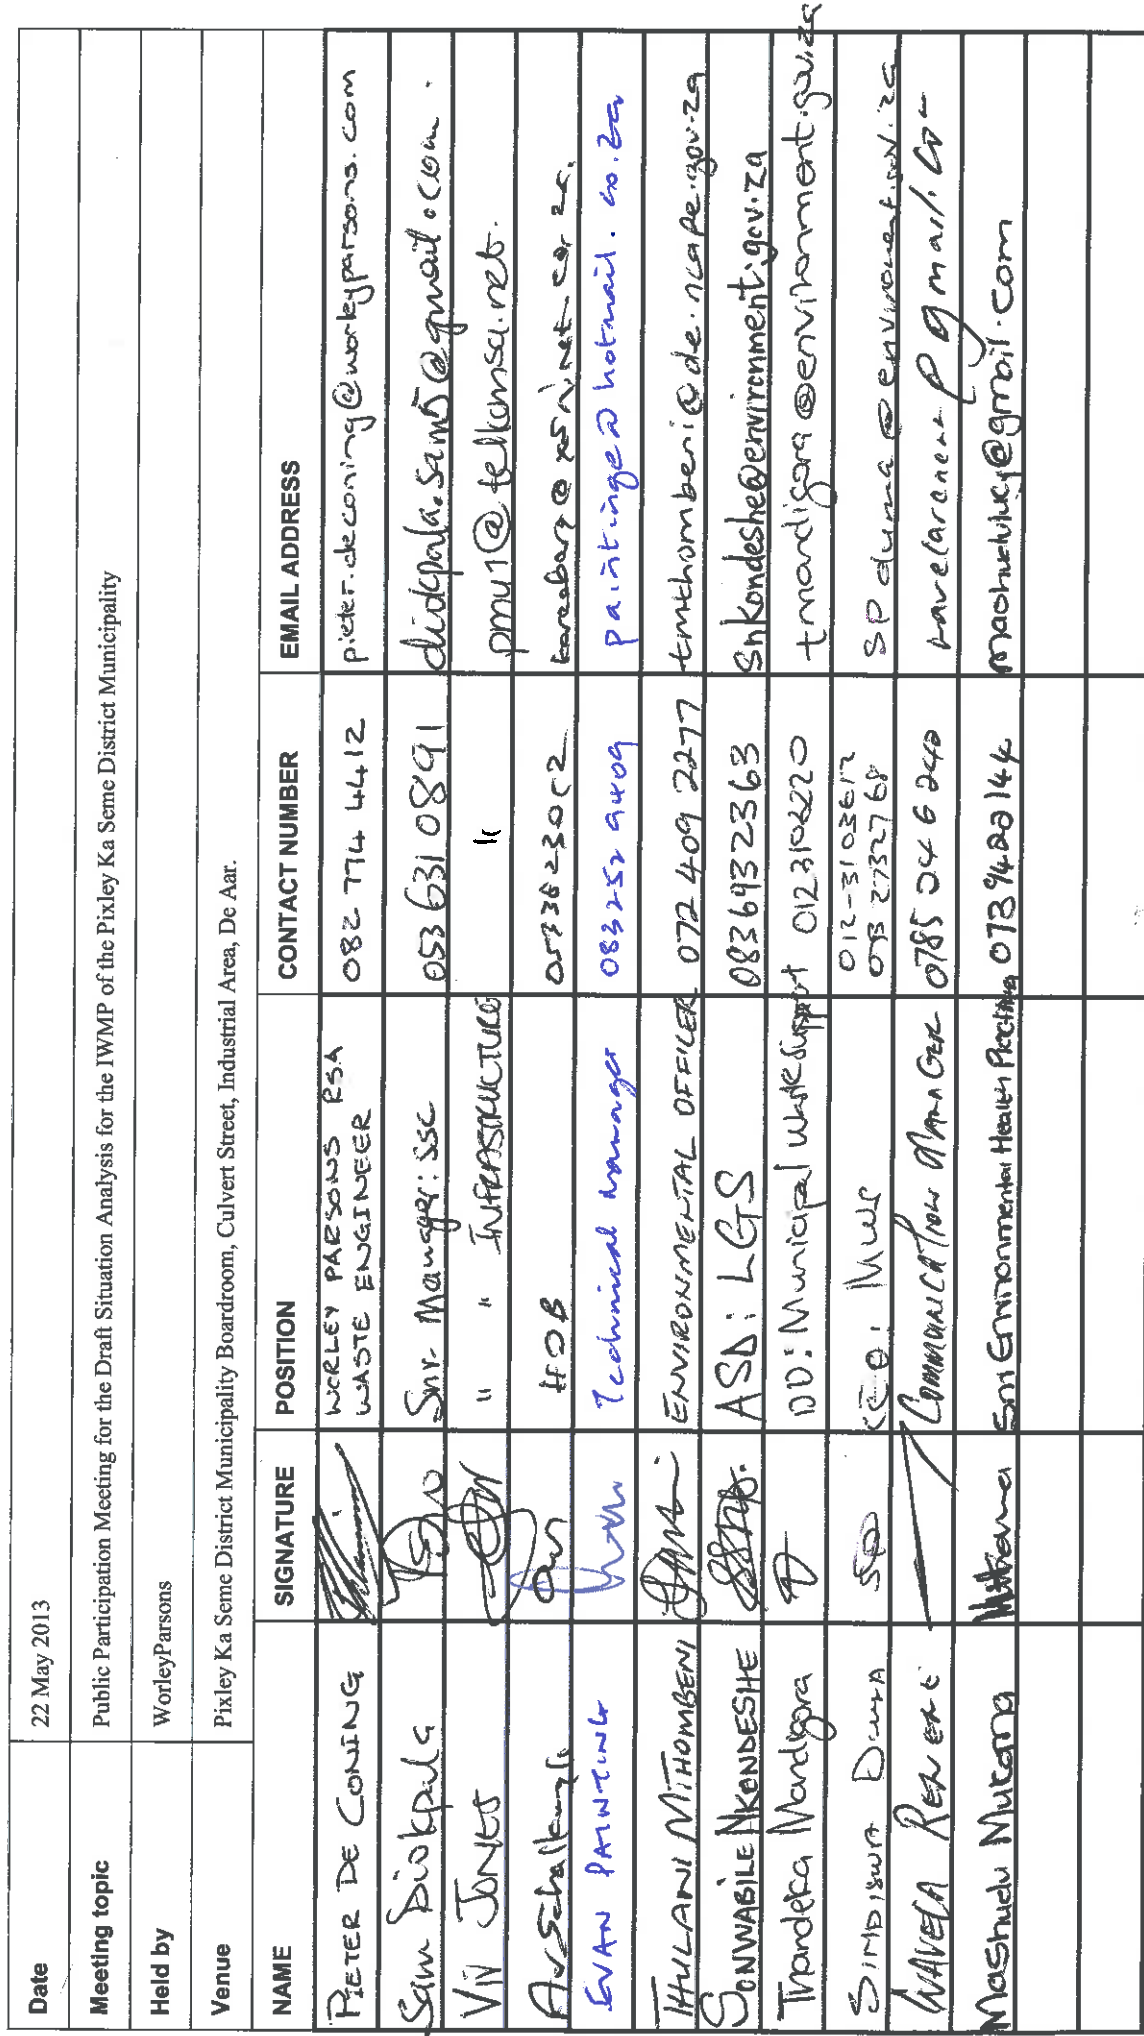 Date 22 May 2013
Meeting topic Public Participation Meeting for the Draft Situation Analysis for the IWMP of the Pixley Ka Seme District Municipality
Held by WorleyParsons
Venue Pixley Ka Seme District Municipality Boardroom, Culvert Street, Industrial Area, De Aar.
NAME SIGNATURE POSITION CONTACT NUMBER EMAIL ADDRESS
PIETER DE CONING WORLEY PARSONS RSA 082 774 4412 pieter.deconing@worleyparsons.com
WASTE ENGINEER
Sam Diokpala Snr. Manager: SSC 053 631 0891 diokpala.sam5@gmail.com.
Viv JONES " " INFRASTRUCTURE " pmu1@telkomsa.net.
HOB
EVAN PAINTING Technical manager 083252 9409 paintinge@hotmail.co.za
THULANI MTHOMBENI ENVIRONMENTAL OFFICER 072 409 2277 tmthombeni@de.ncape.gov.za
SONWABILE NKONDESHE ASD: LGS 0836932363 Snkondeshe@environment.gov.za
Thandeka Mandigora DD: Municipal Waste Support 0123102220 tmandigora@environment.gov.za
SIMDISWA DUMA SD 012-310
SPduma@environment.gov.za
COMMUNICATION MANAGER 0785 246 240 gmail.com
Mashudu Mukoma Snr Environmental Health 0739422144 @gmail.com